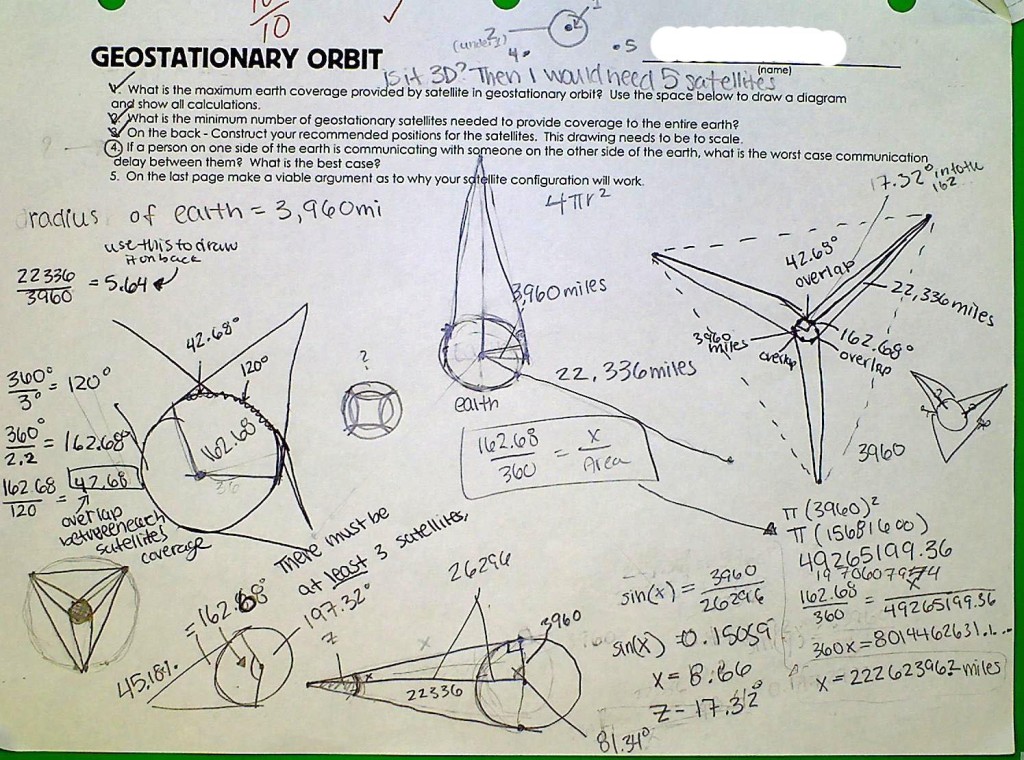 10
10
1
2
3
(under 2)
4
5
GEOSTATIONARY ORBIT
Is it 3D? Then I would need 5 satellites
(name)
1. What is the maximum earth coverage provided by satellite in geostationary orbit? Use the space below to draw a diagram
and show all calculations.
2. What is the minimum number of geostationary satellites needed to provide coverage to the entire earth?
3. On the back - Construct your recommended positions for the satellites. This drawing needs to be to scale.
4. If a person on one side of the earth is communicating with someone on the other side of the earth, what is the worst case communication
delay between them? What is the best case?
5. On the last page make a viable argument as to why your satellite configuration will work.
radius of earth = 3,960mi
4πr²
17.32°
use this to draw
it on back
22336
3960
= 5.64
3,960 miles
22,336 miles
earth
42.68°
overlap
22,336 miles
3960
miles
overlap
162.68°
overlap
3960
42.68°
120°
162.68
?
360°
3°
= 120°
360°
2.2
= 162.68°
162.68
120
= 42.68
overlap
between each
satellites
coverage
162.68
360
=
x
Area
There must be
at least 3 satellites,
= 162.68°
197.32°
45.18%
z
x
26296
22336
3960
x
81.34°
sin(x) =
3960
26296
sin(x) = 0.15059
x = 8.66
z = 17.32°
π(3960)²
π(15681600)
49265199.36
162.68
360
=
x
49265199.36
360x = 8014462631.1...
x = 22262396.2 miles